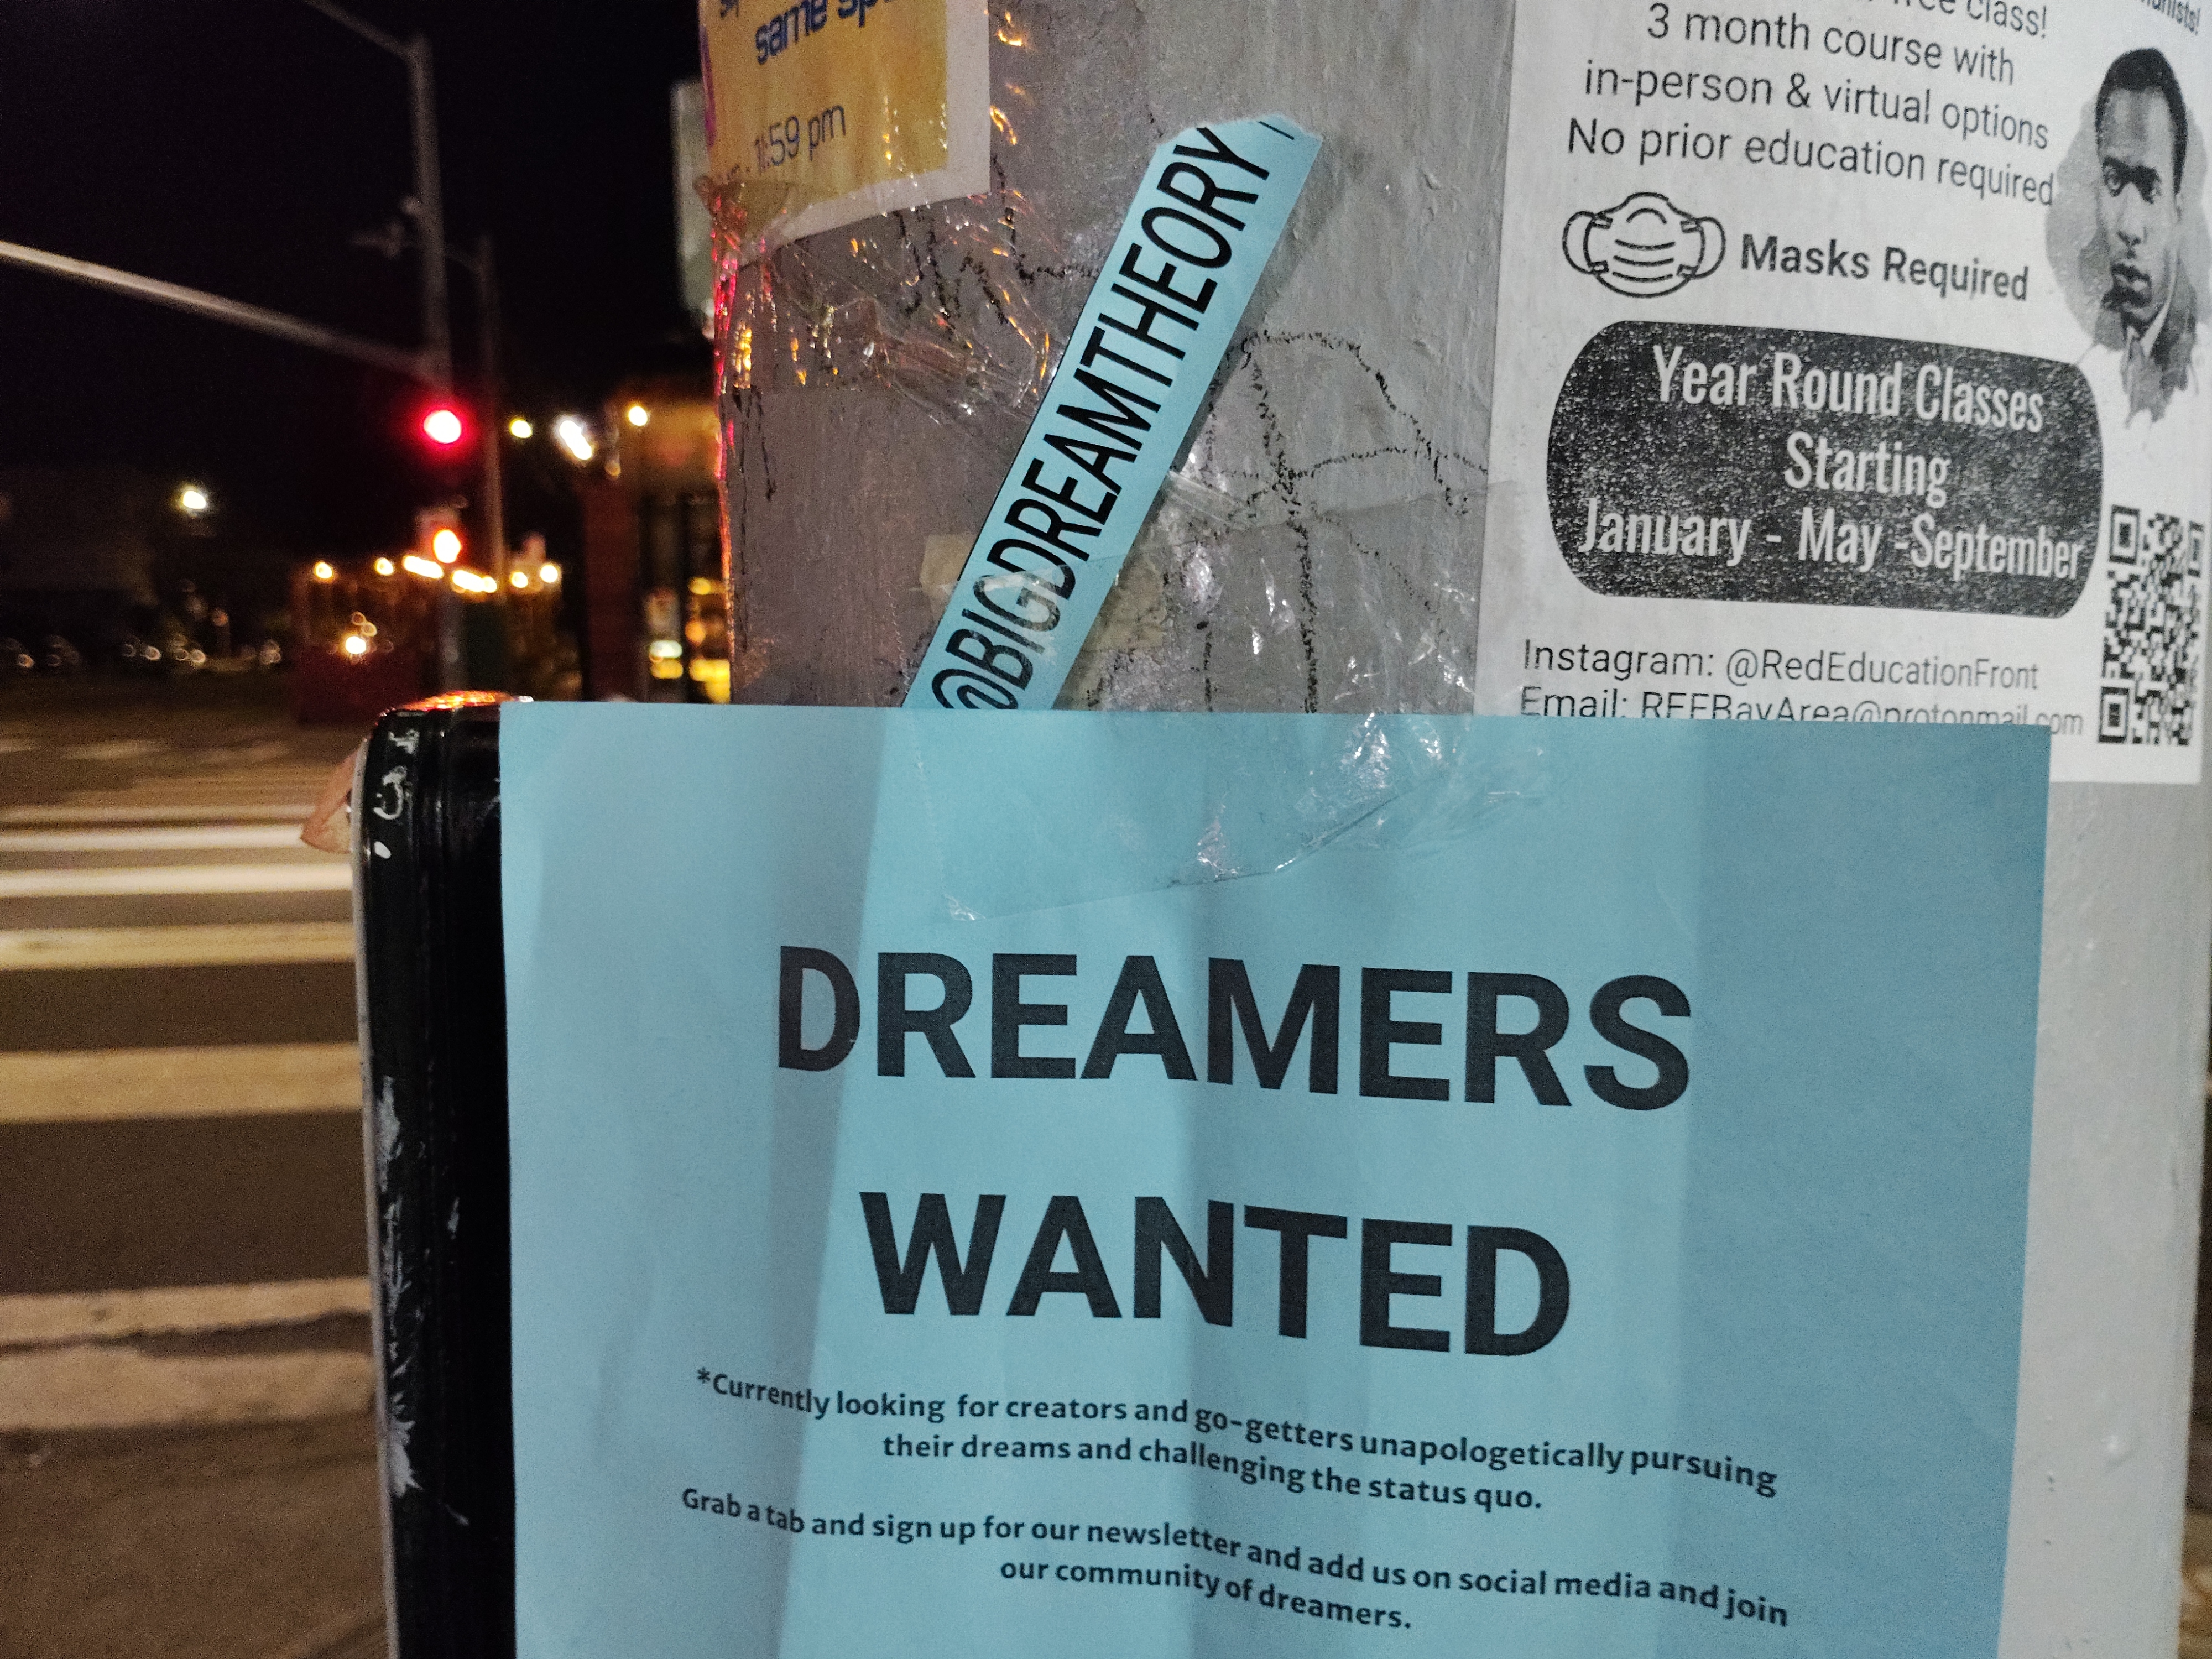 same
11:59 pm
@BIGDREAMTHEORY
class!
3 month course with
in-person & virtual options
No prior education required
Masks Required
Year Round Classes
Starting
January - May -September
Instagram: @RedEducationFront
Email: REFBayArea@protonmail.com
DREAMERS
WANTED
*Currently looking for creators and go-getters unapologetically pursuing
their dreams and challenging the status quo.
Grab a tab and sign up for our newsletter and add us on social media and join
our community of dreamers.